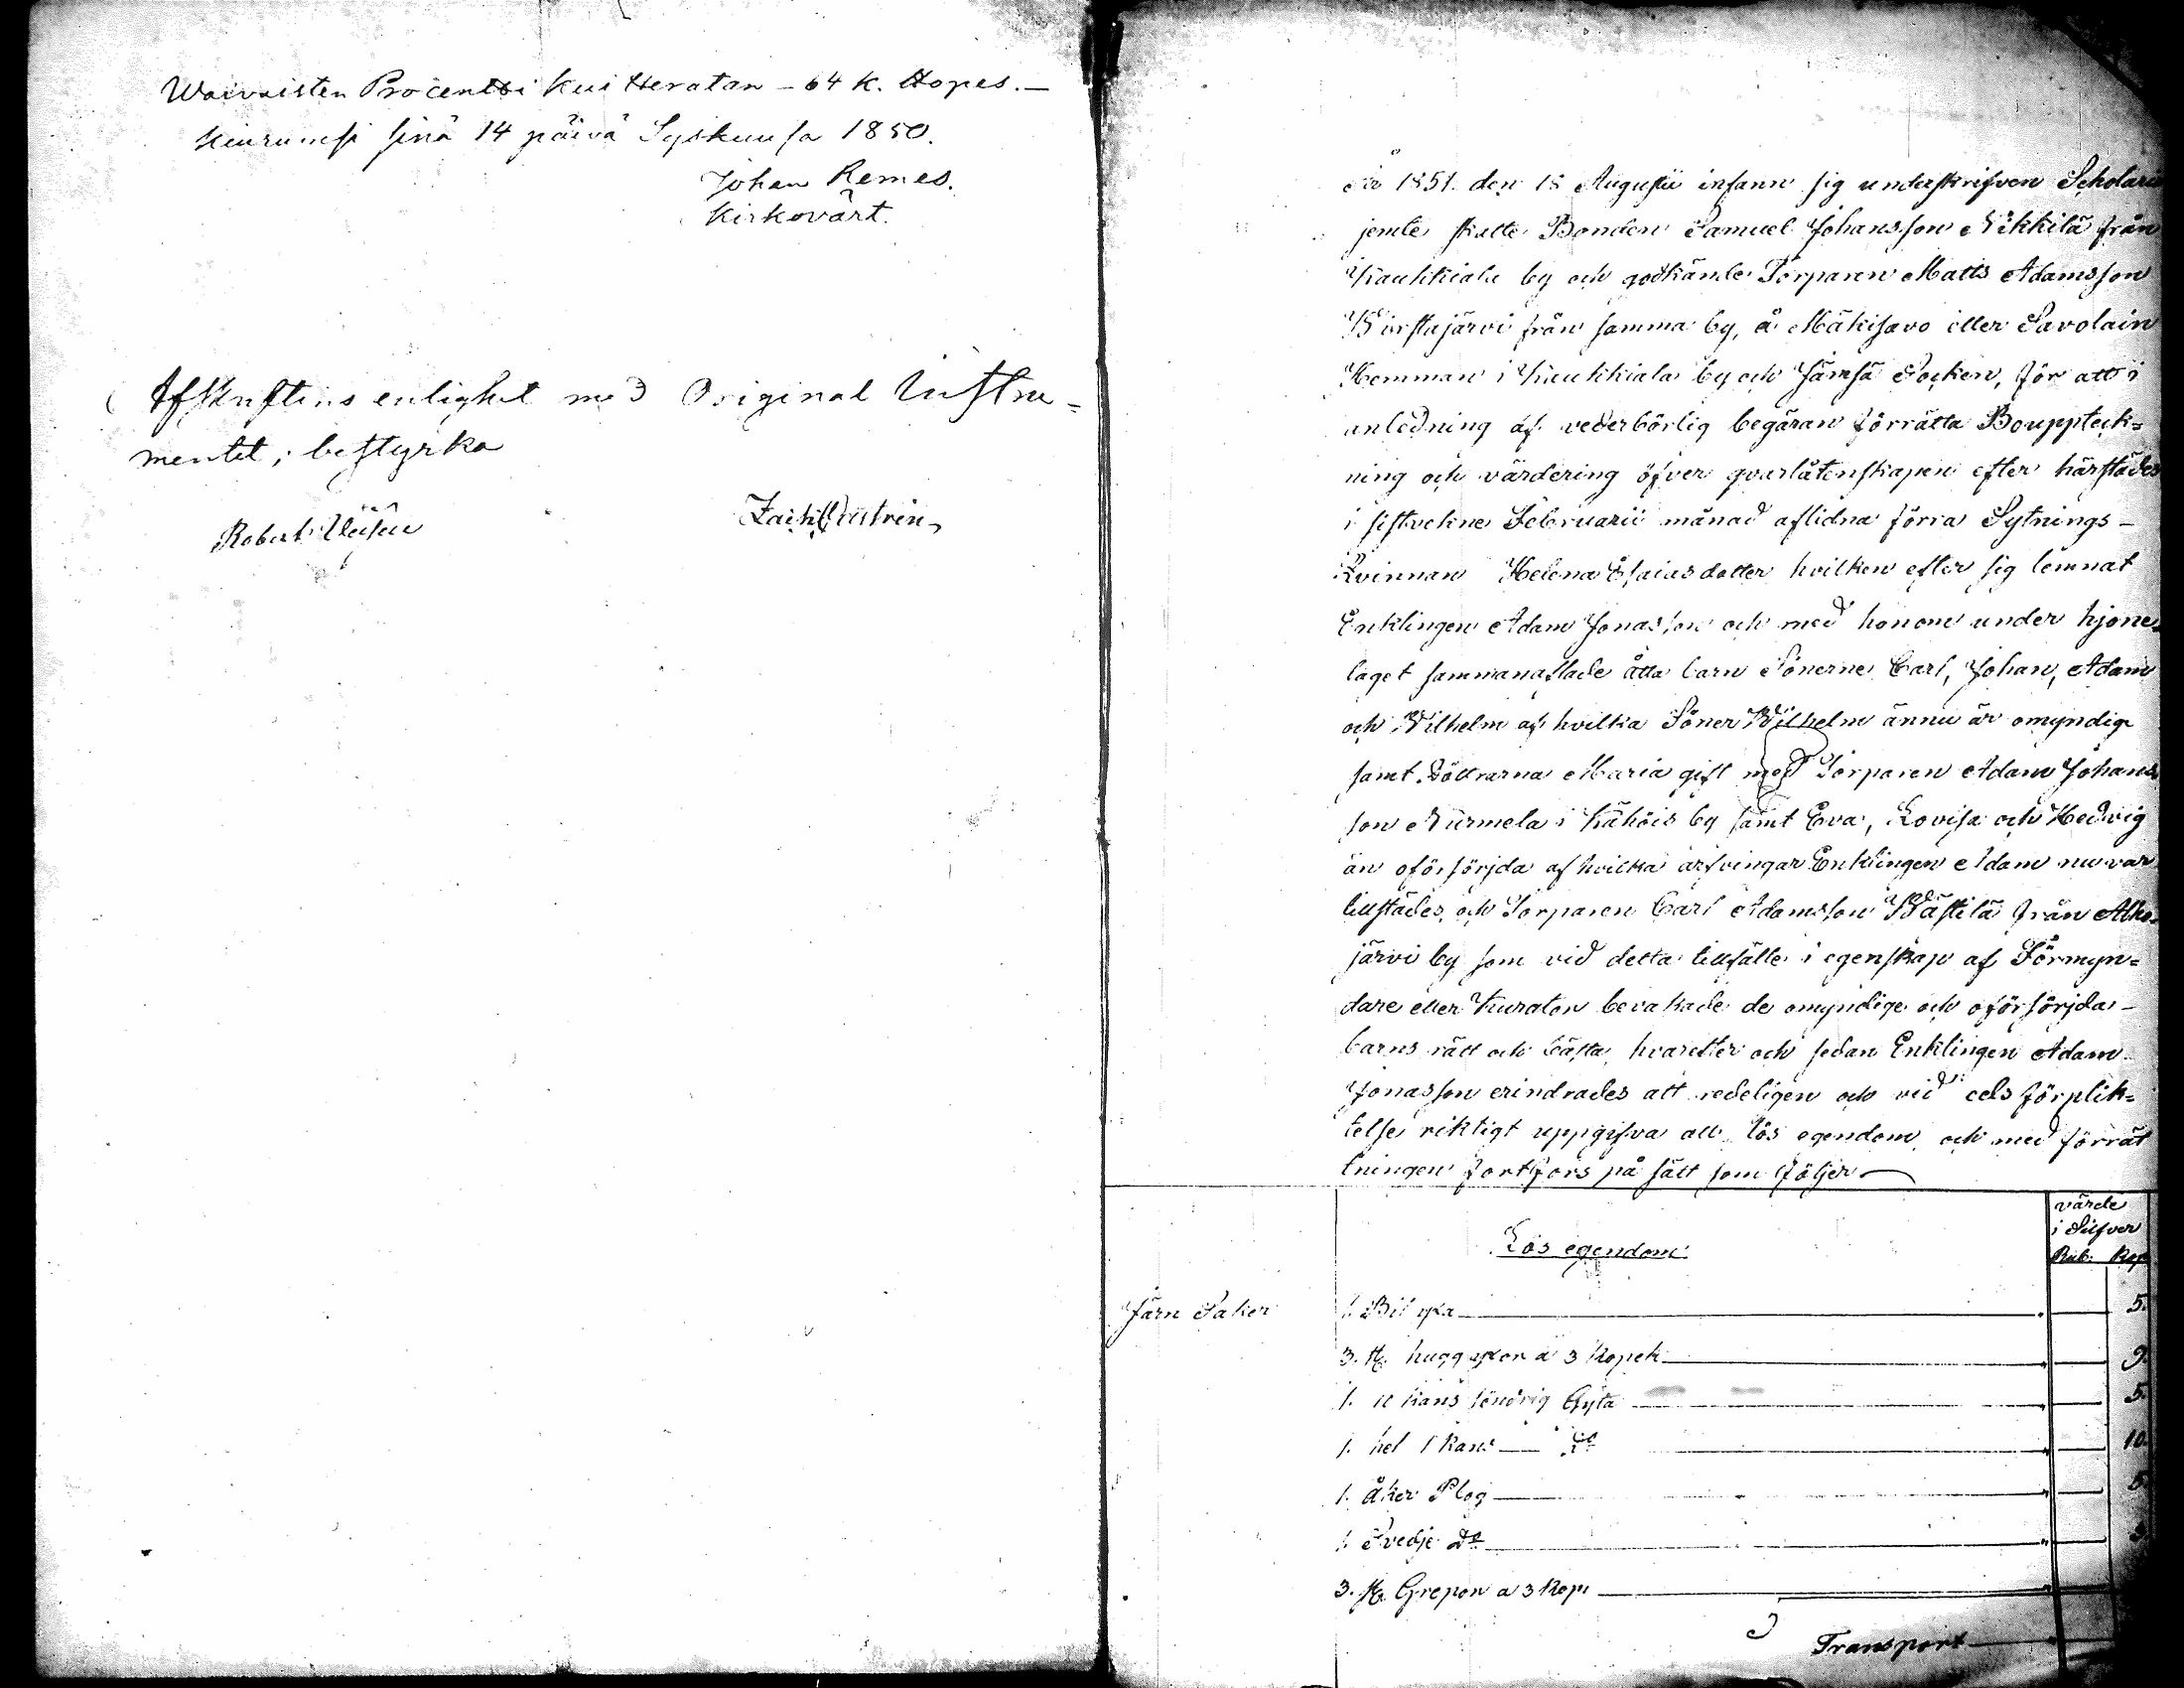 Waivaisten Procentti kuitteratan - 64 k. Hopes. -
Keuruulla sinä 14 päivä Syskuusa 1850.
Johan Remes.
Kirkovärt.
Afskriftens enlighet med Original Instru=
mentet, bestyrka
Robert
År 1851 den 18 Augusti infann sig underskrifven Scholaris
jemte skatte Bonden Samuel Johansson Nikkilä från
Kaukkiala by och godkände Torparen Matts Adamsson
Wirstajärvi från samma by, å Mäkisavo eller Savolain
Hemman i Kaukkiala by och Jämsä Socken, för att i
anledning af vederbörlig begäran förrätta Boupptek=
ning och värdering öfver qvarlåtenskapen efter härstädes
i sistvekne Februarii månad aflidna förra Sytnings-
Qvinnan Helena Esaiasdotter hvilken efter sig lemnat
Enklingen Adam Jonasson och med honom under hjone=
laget sammanaflade åtta barn Sönerne Carl, Johan, Adam
och Wilhelm af hvilka Söner Wilhelm ännu är omyndige
samt Döttrarna Maria gift med Torparen Adam Johans
son Nurmela i Kähöis by samt Eva, Lovisa och Hedvig
än oförsörjda af hvilka arfvingar Enklingen Adam nu var
tillstädes, och Torparen Carl Adamsson Wästilä från Alho=
järvi by som vid detta tillfälle i egenskap af Förmyn=
dare eller Kurator bevakade de omyndige och oförsörjda-
barns rätt och bästa, hvarefter och sedan Enklingen Adam
Jonasson erindrades att redeligen och vid eds förplik=
telse riktigt uppgifva all lös egendom och med förrät
tningen fortfors på sätt som följer
värde
i Silfver
Lös egendom
Rub. Kop.
Järn Saker 1. Bil yxa 5.
3. st. hugg yxor a 3 Kopek 9.
1. kans söndrig Gryta 5.
1. hel 1 Kans do 10.
1. åker Plog 5
1 Svedje do 3.
3. st. Grepon a 3 Kop.
Transport